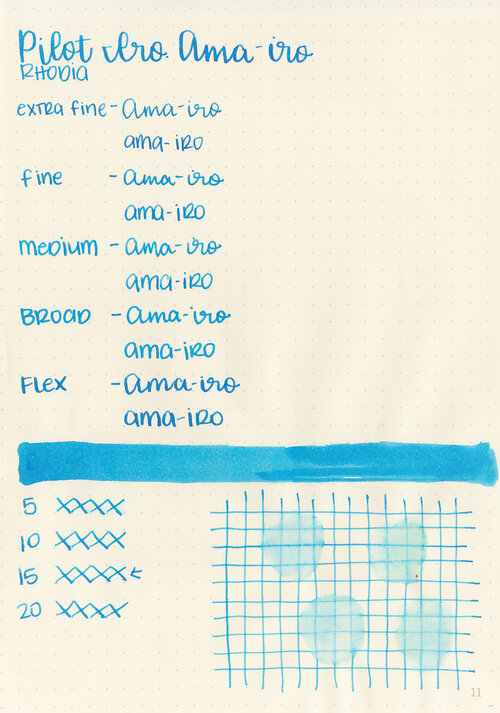 Pilot Iro. Ama-iro
RHODIA
extra fine - Ama-iro
ama-iro
fine - Ama-iro
ama-iro
medium - Ama-iro
ama-iro
BROAD - Ama-iro
ama-iro
FLEX - Ama-iro
ama-iro
5 XXXX
10 XXXX
15 XXXX←
20 XXXX
11